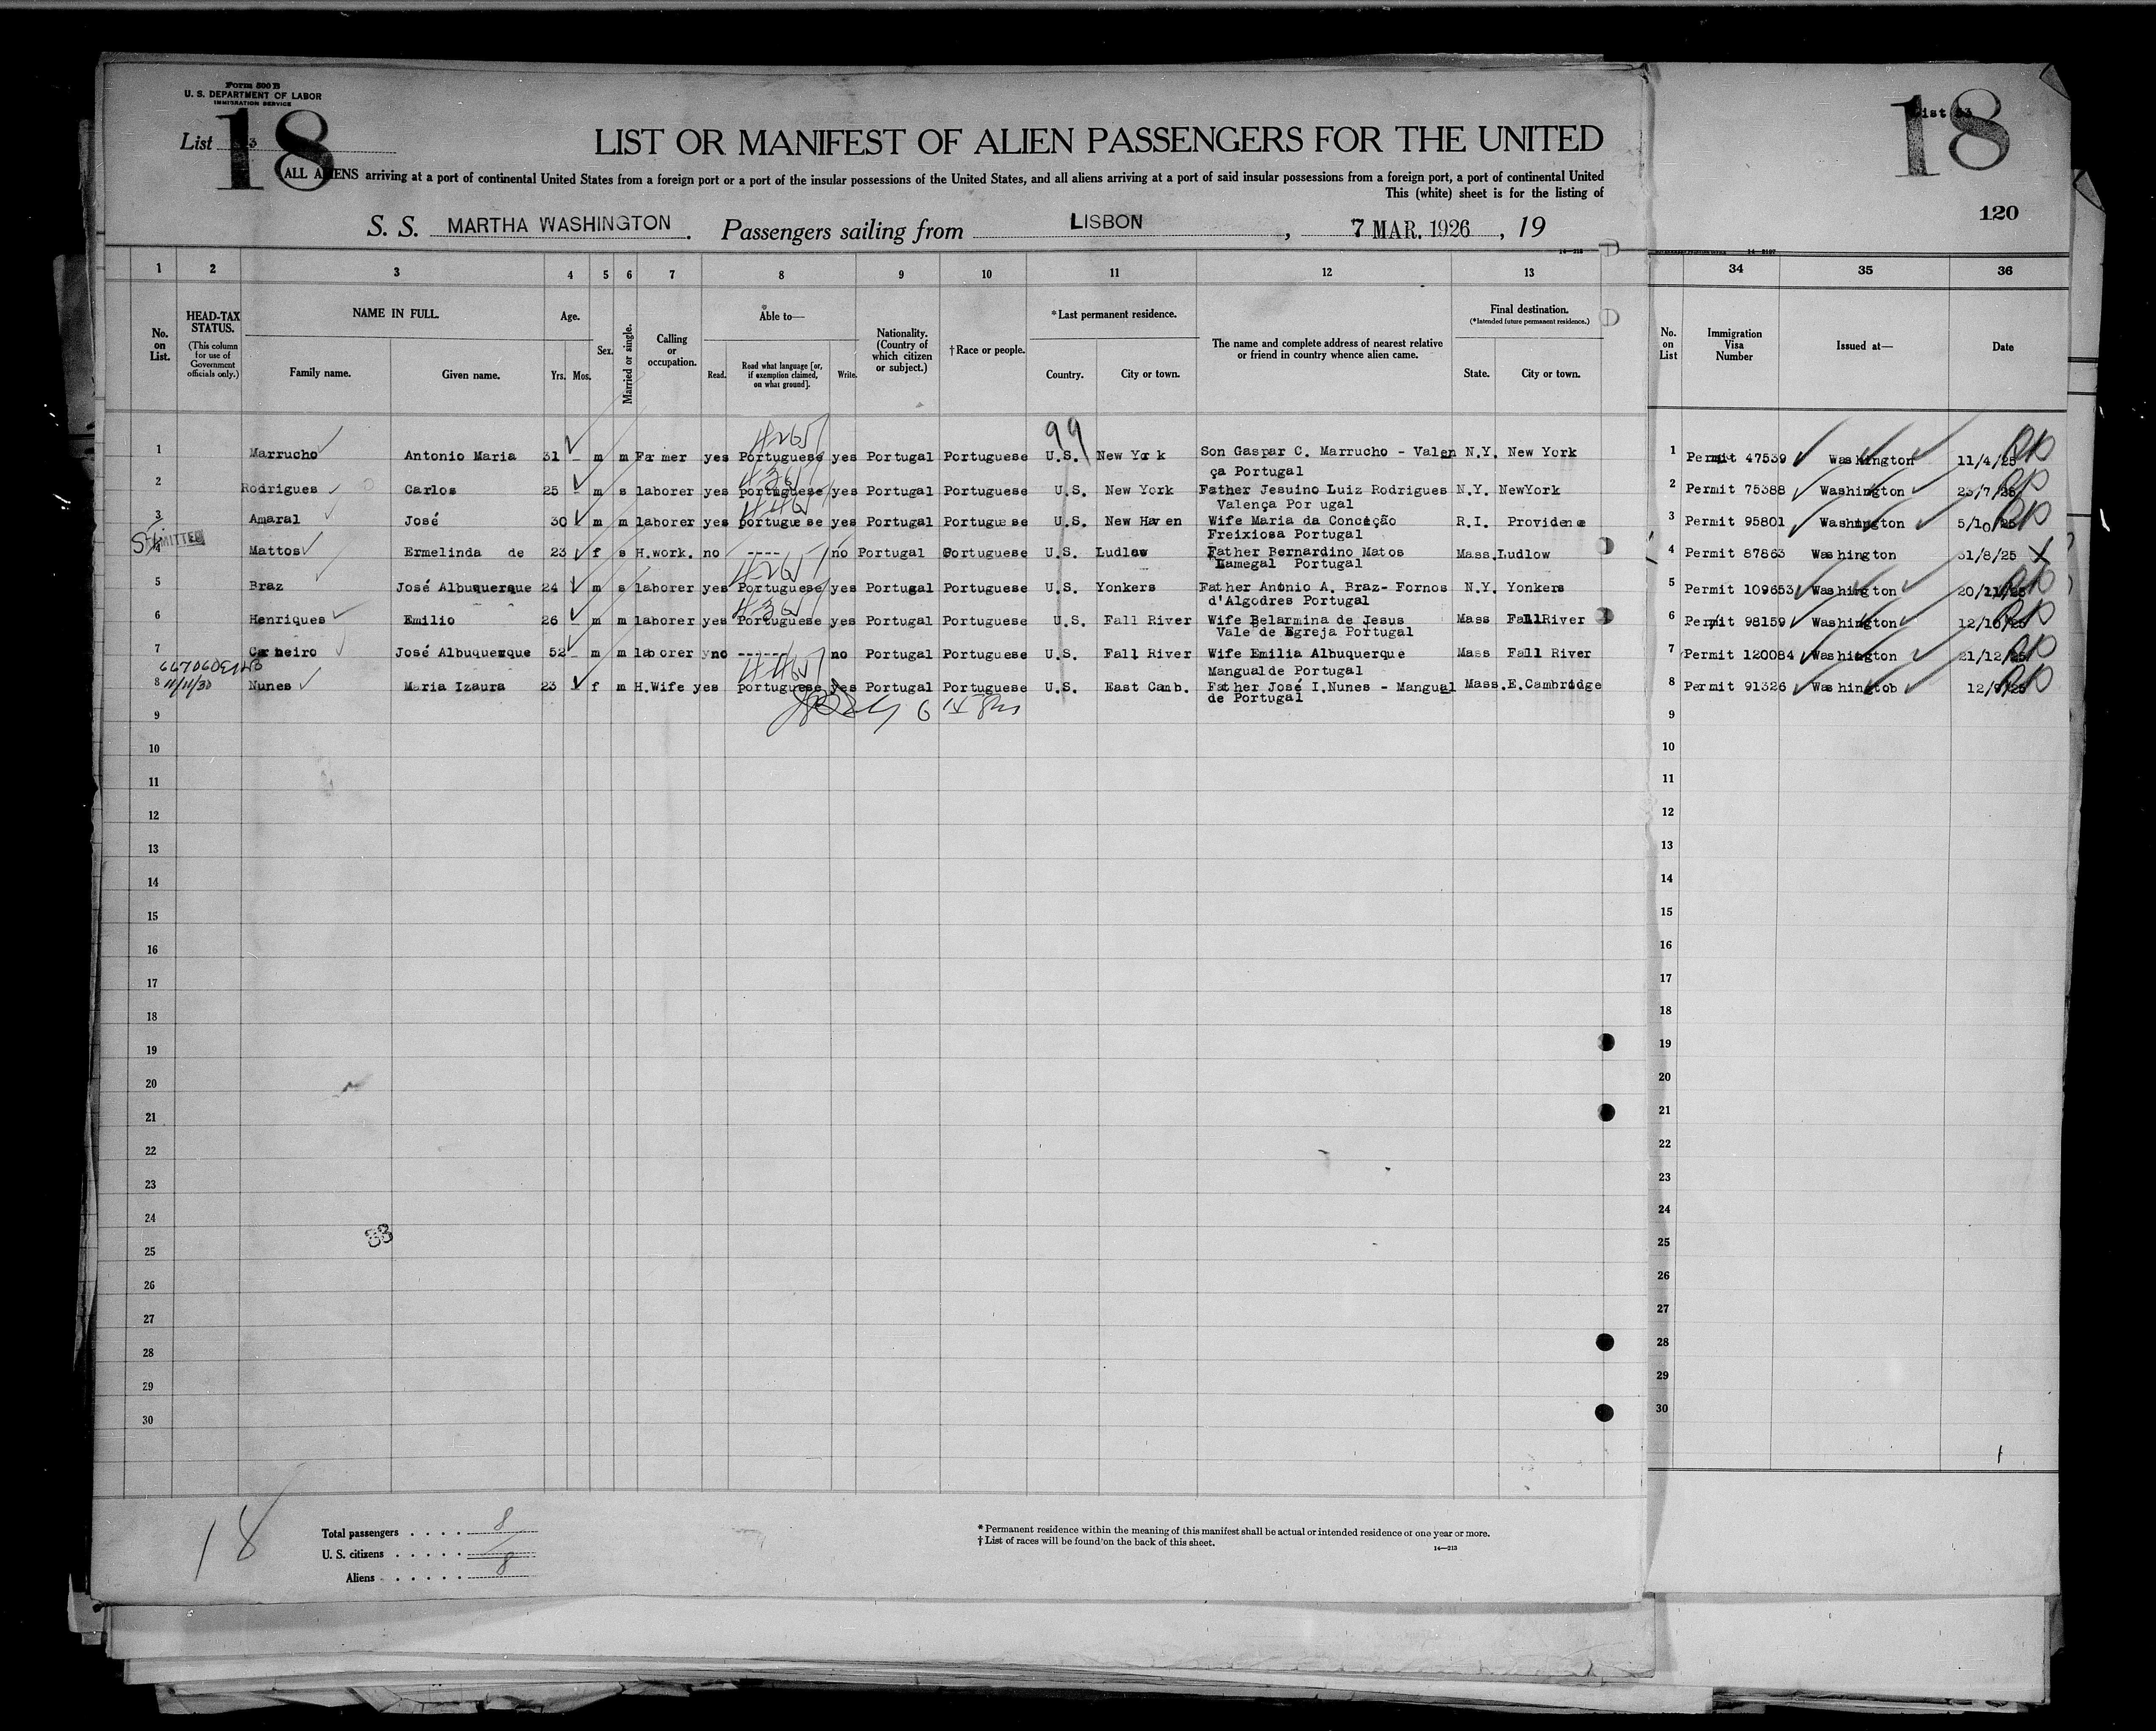 Form 500 B
U. S. DEPARTMENT OF LABOR
IMMIGRATION SERVICE
List 18
LIST OR MANIFEST OF ALIEN PASSENGERS FOR THE UNITED
ALL ALIENS arriving at a port of continental United States from a foreign port or a port of the insular possessions of the United States, and all aliens arriving at a port of said insular possessions from a foreign port, a port of continental United
This (white) sheet is for the listing of
S. S. MARTHA WASHINGTON. Passengers sailing from LISBON, 7 MAR. 1926, 19
List 18
120
1 2 3 4 5 6 7 8 9 10 11 12 13 34 35 36
No. on List.
HEAD-TAX STATUS.
(This column for use of Government officials only.)
NAME IN FULL.
Family name. Given name.
Age.
Yrs. Mos.
Sex.
Married or single.
Calling or occupation.
Able to—
Read. Read what language [or, if exemption claimed, on what ground]. Write.
Nationality. (Country of which citizen or subject.)
†Race or people.
*Last permanent residence.
Country. City or town.
The name and complete address of nearest relative or friend in country whence alien came.
Final destination.
(*Intended future permanent residence.)
State. City or town.
No. on List
Immigration Visa Number
Issued at—
Date
99
1 Marrucho Antonio Maria 31 - m m Farmer yes Portuguese yes Portugal Portuguese U.S. New York Son Gaspar C. Marrucho - Valen N.Y. New York 1 Permit 47539 Washington 11/4/25
ça Portugal
2 Rodrigues Carlos 25 - m s laborer yes portuguese yes Portugal Portuguese U.S. New York Father Jesuino Luiz Rodrigues N.Y. NewYork 2 Permit 75388 Washington 23/7/25
Valença Por ugal
3 Amaral José 30 m m laborer yes portuguese yes Portugal Portuguese U.S. New Haven Wife Maria da Conceição R.I. Providence 3 Permit 95801 Washington 5/10/25
Freixiosa Portugal
ADMITTED
4 Mattos Ermelinda de 23 f s H.work. no ---- no Portugal Portuguese U.S. Ludlow Father Bernardino Matos Mass. Ludlow 4 Permit 87863 Washington 31/8/25
Lamegal Portugal
5 Braz José Albuquerque 24 m s laborer yes Portuguese yes Portugal Portuguese U.S. Yonkers Father Antonio A. Braz- Fornos N.Y. Yonkers 5 Permit 109653 Washington 20/11/25
d'Algodres Portugal
6 Henriques Emilio 26 m m laborer yes Portuguese yes Portugal Portuguese U.S. Fall River Wife Belarmina de Jesus Mass FallRiver 6 Permit 98159 Washington 12/10/25
Vale de Egreja Portugal
7 Carneiro José Albuquerque 52 - m m laborer no ------ no Portugal Portuguese U.S. Fall River Wife Emilia Albuquerque Mass Fall River 7 Permit 120084 Washington 21/12/25
Mangualde Portugal
11/11/30
8 Nunes Maria Izaura 23 f m H.Wife yes portuguese yes Portugal Portuguese U.S. East Camb. Father José I.Nunes - Mangual Mass. E.Cambridge 8 Permit 91326 Washingtob 12/9/25
de Portugal
9 9
10 10
11 11
12 12
13 13
14 14
15 15
16 16
17 17
18 18
19 19
20 20
21 21
22 22
23 23
24 24
33
25 25
26 26
27 27
28 28
29 29
30 30
18
Total passengers . . . . 8
U. S. citizens . . . . .
Aliens . . . . . . 8
* Permanent residence within the meaning of this manifest shall be actual or intended residence of one year or more.
† List of races will be found on the back of this sheet.
14—213